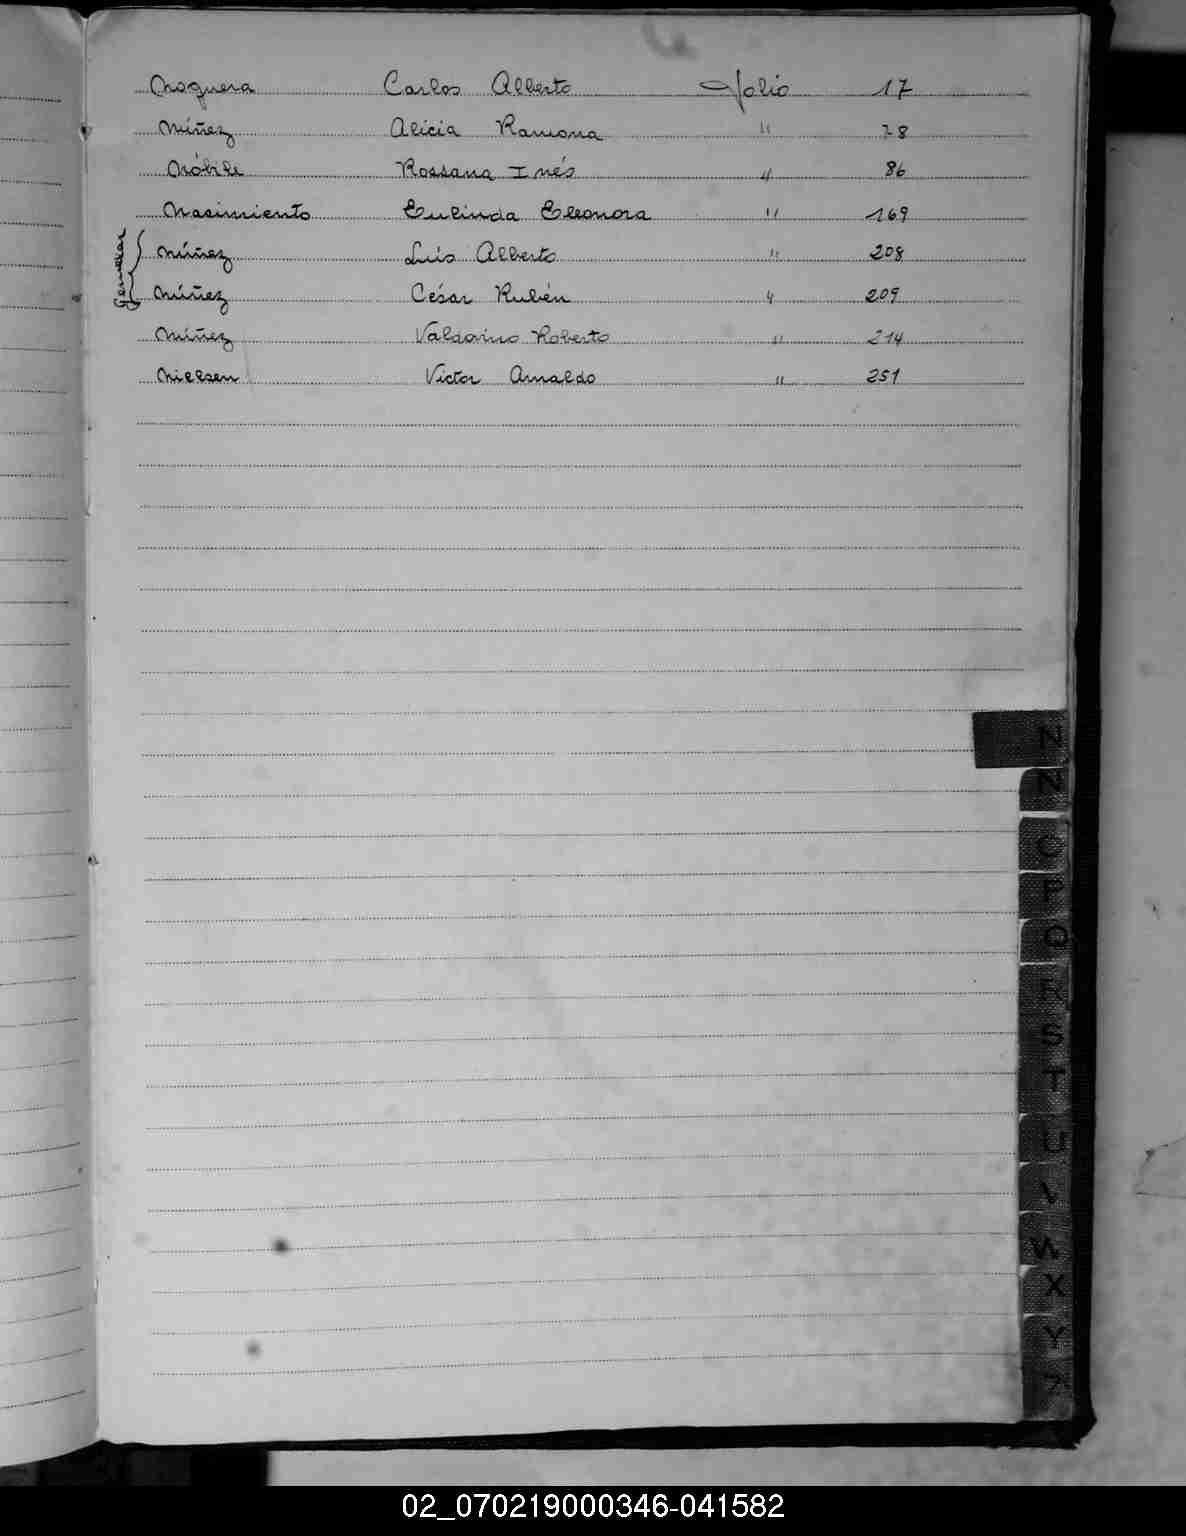 Noguera Carlos Alberto Folio 17
Núñez Alicia Ramona " 78
Nóbile Rossana Inés " 86
Nacimiento Eulinda Eleonora " 169
Gemelar
Núñez Luis Alberto " 208
Núñez César Rubén " 209
Núñez Valdovino Roberto " 214
Nielsen Victor Arnaldo " 251
N
N
O
P
Q
R
S
T
U
V
W
X
Y
Z
02_070219000346-041582